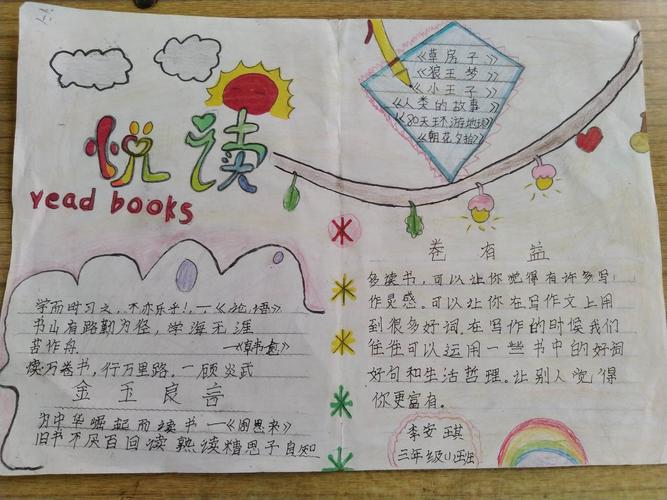 悦读
Yead books
《草房子》
《狼王梦》
《小王子》
《人类的故事》
《80天环游地球》
《朝花夕拾》
学而时习之，不亦乐乎！—《论语》
书山有路勤为径，学海无涯
苦作舟
读万卷书，行万里路。—顾炎武
金玉良言
为中华崛起而读书—《周恩来》
旧书不厌百回读 熟读精思子自知
卷有益
多读书，可以让你觉得有许多写
作灵感。可以让你在写作文上用
到很多好词。在写作的时候我们
往往可以运用一些书中的好词
好句和生活哲理。让别人觉得
你更富有。
李安琪
三年级